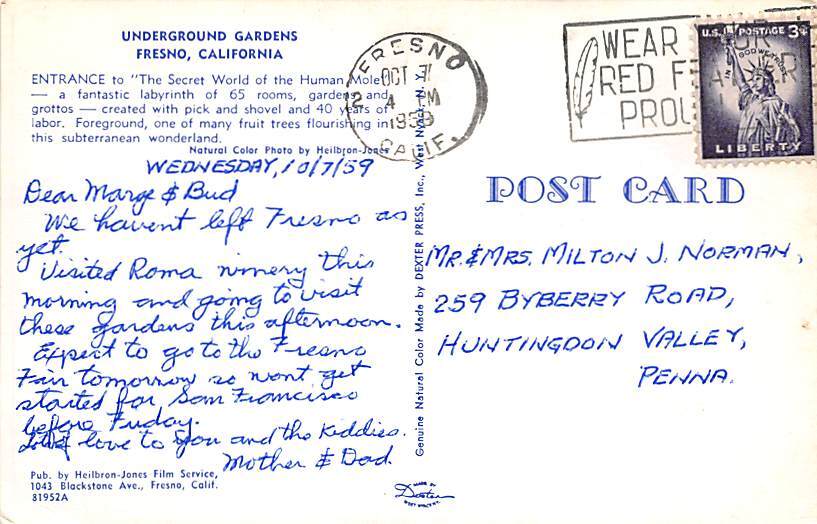 UNDERGROUND GARDENS
FRESNO, CALIFORNIA
ENTRANCE to "The Secret World of the Human Mole"
— a fantastic labyrinth of 65 rooms, gardens and
grottos — created with pick and shovel and 40 years of
labor. Foreground, one of many fruit trees flourishing in
this subterranean wonderland.
Natural Color Photo by Heilbron-Jones
WEDNESDAY, 10/7/59
Dear Marge & Bud
We havent left Fresno as
yet.
Visited Roma winery this
morning and going to visit
these gardens this afternoon.
Expect to go to the Fresno
Fair tomorrow so wont get
started for San Francisco
before Friday.
Lots of love to you and the Kiddies.
Mother & Dad.
Pub. by Heilbron-Jones Film Service,
1043 Blackstone Ave., Fresno, Calif.
81952A
Genuine Natural Color Made by DEXTER PRESS, Inc., West Nyack, N. Y.
MADE BY
Dexter
WEST NYACK, N.Y.
FRESNO
OCT
1959
CALIF.
WEAR
RED
PROU
U.S. POSTAGE 3¢
IN GOD WE TRUST
LIBERTY
POST CARD
MR. & MRS. MILTON J. NORMAN,
259 BYBERRY ROAD,
HUNTINGDON VALLEY,
PENNA.